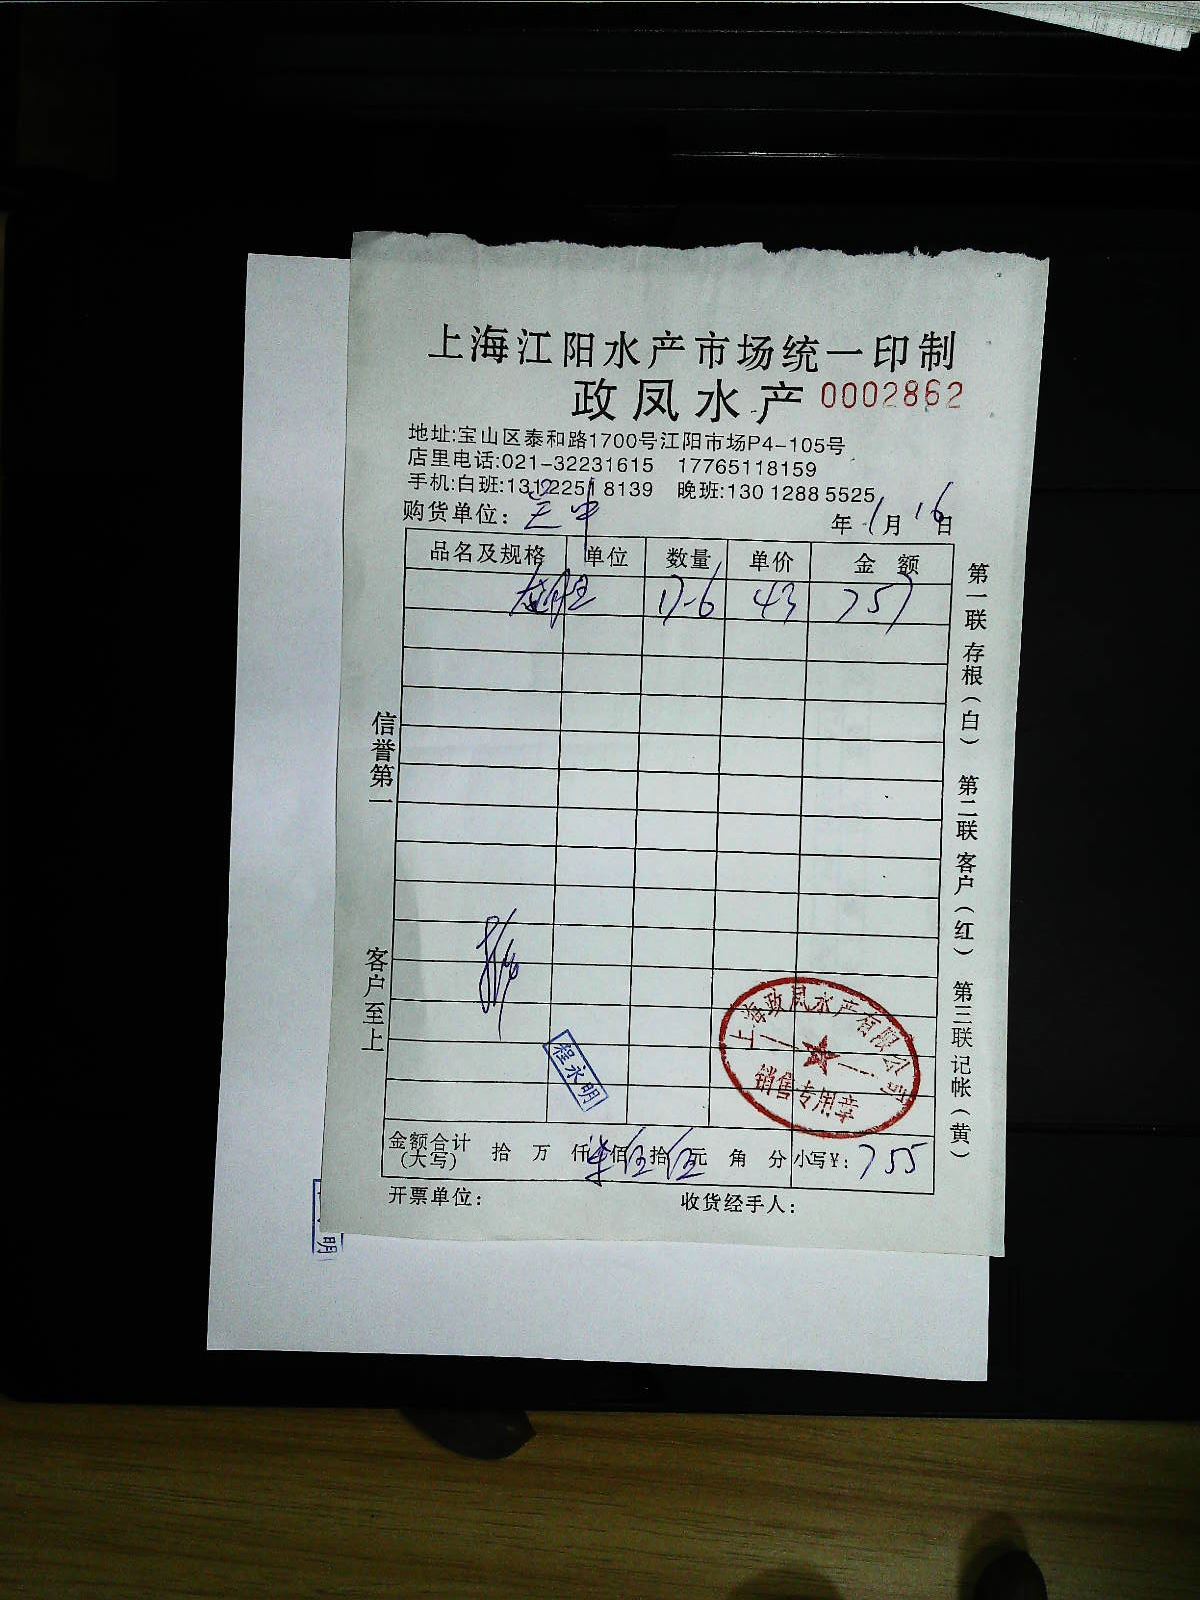 上海江阳水产市场统一印制
政凤水产 0002862
地址:宝山区泰和路1700号江阳市场P4-105号
店里电话:021-32231615 17765118159
手机:白班:13122518139 晚班:13012885525
购货单位: 吴中 年 1月 16日
品名及规格 单位 数量 单价 金 额
17-6 43 757
信誉第一 客户至上
第一联 存根(白) 第二联 客户(红) 第三联 记帐(黄)
上海政凤水产有限公司
销售专用章
程永明
金额合计(大写) 拾 万 仟 柒佰 伍拾 伍元 角 分 小写¥: 755
开票单位: 收货经手人:
明